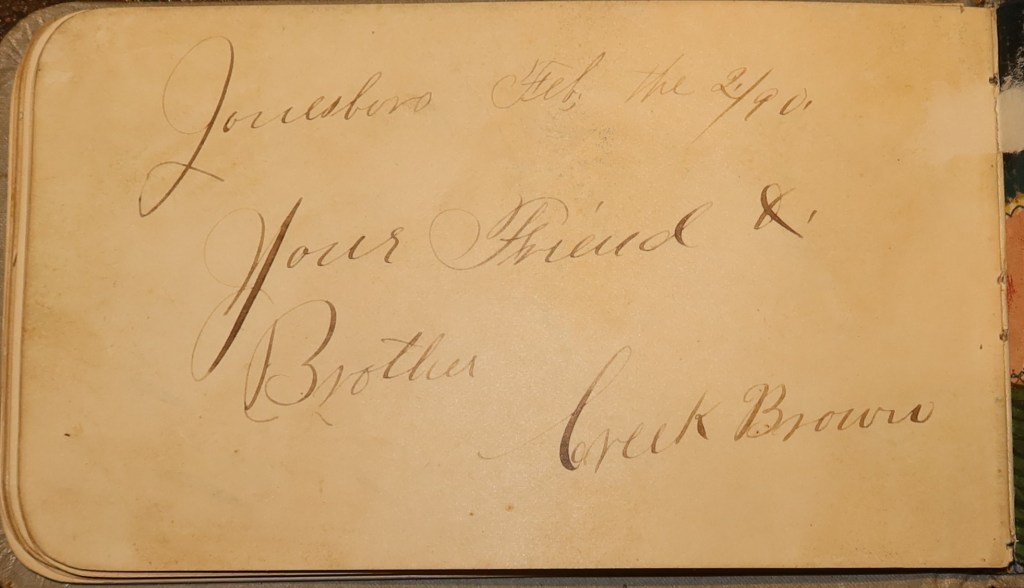 Jonesboro Feb, the 2/90.
Your Friend &
Brother
Creek Brown